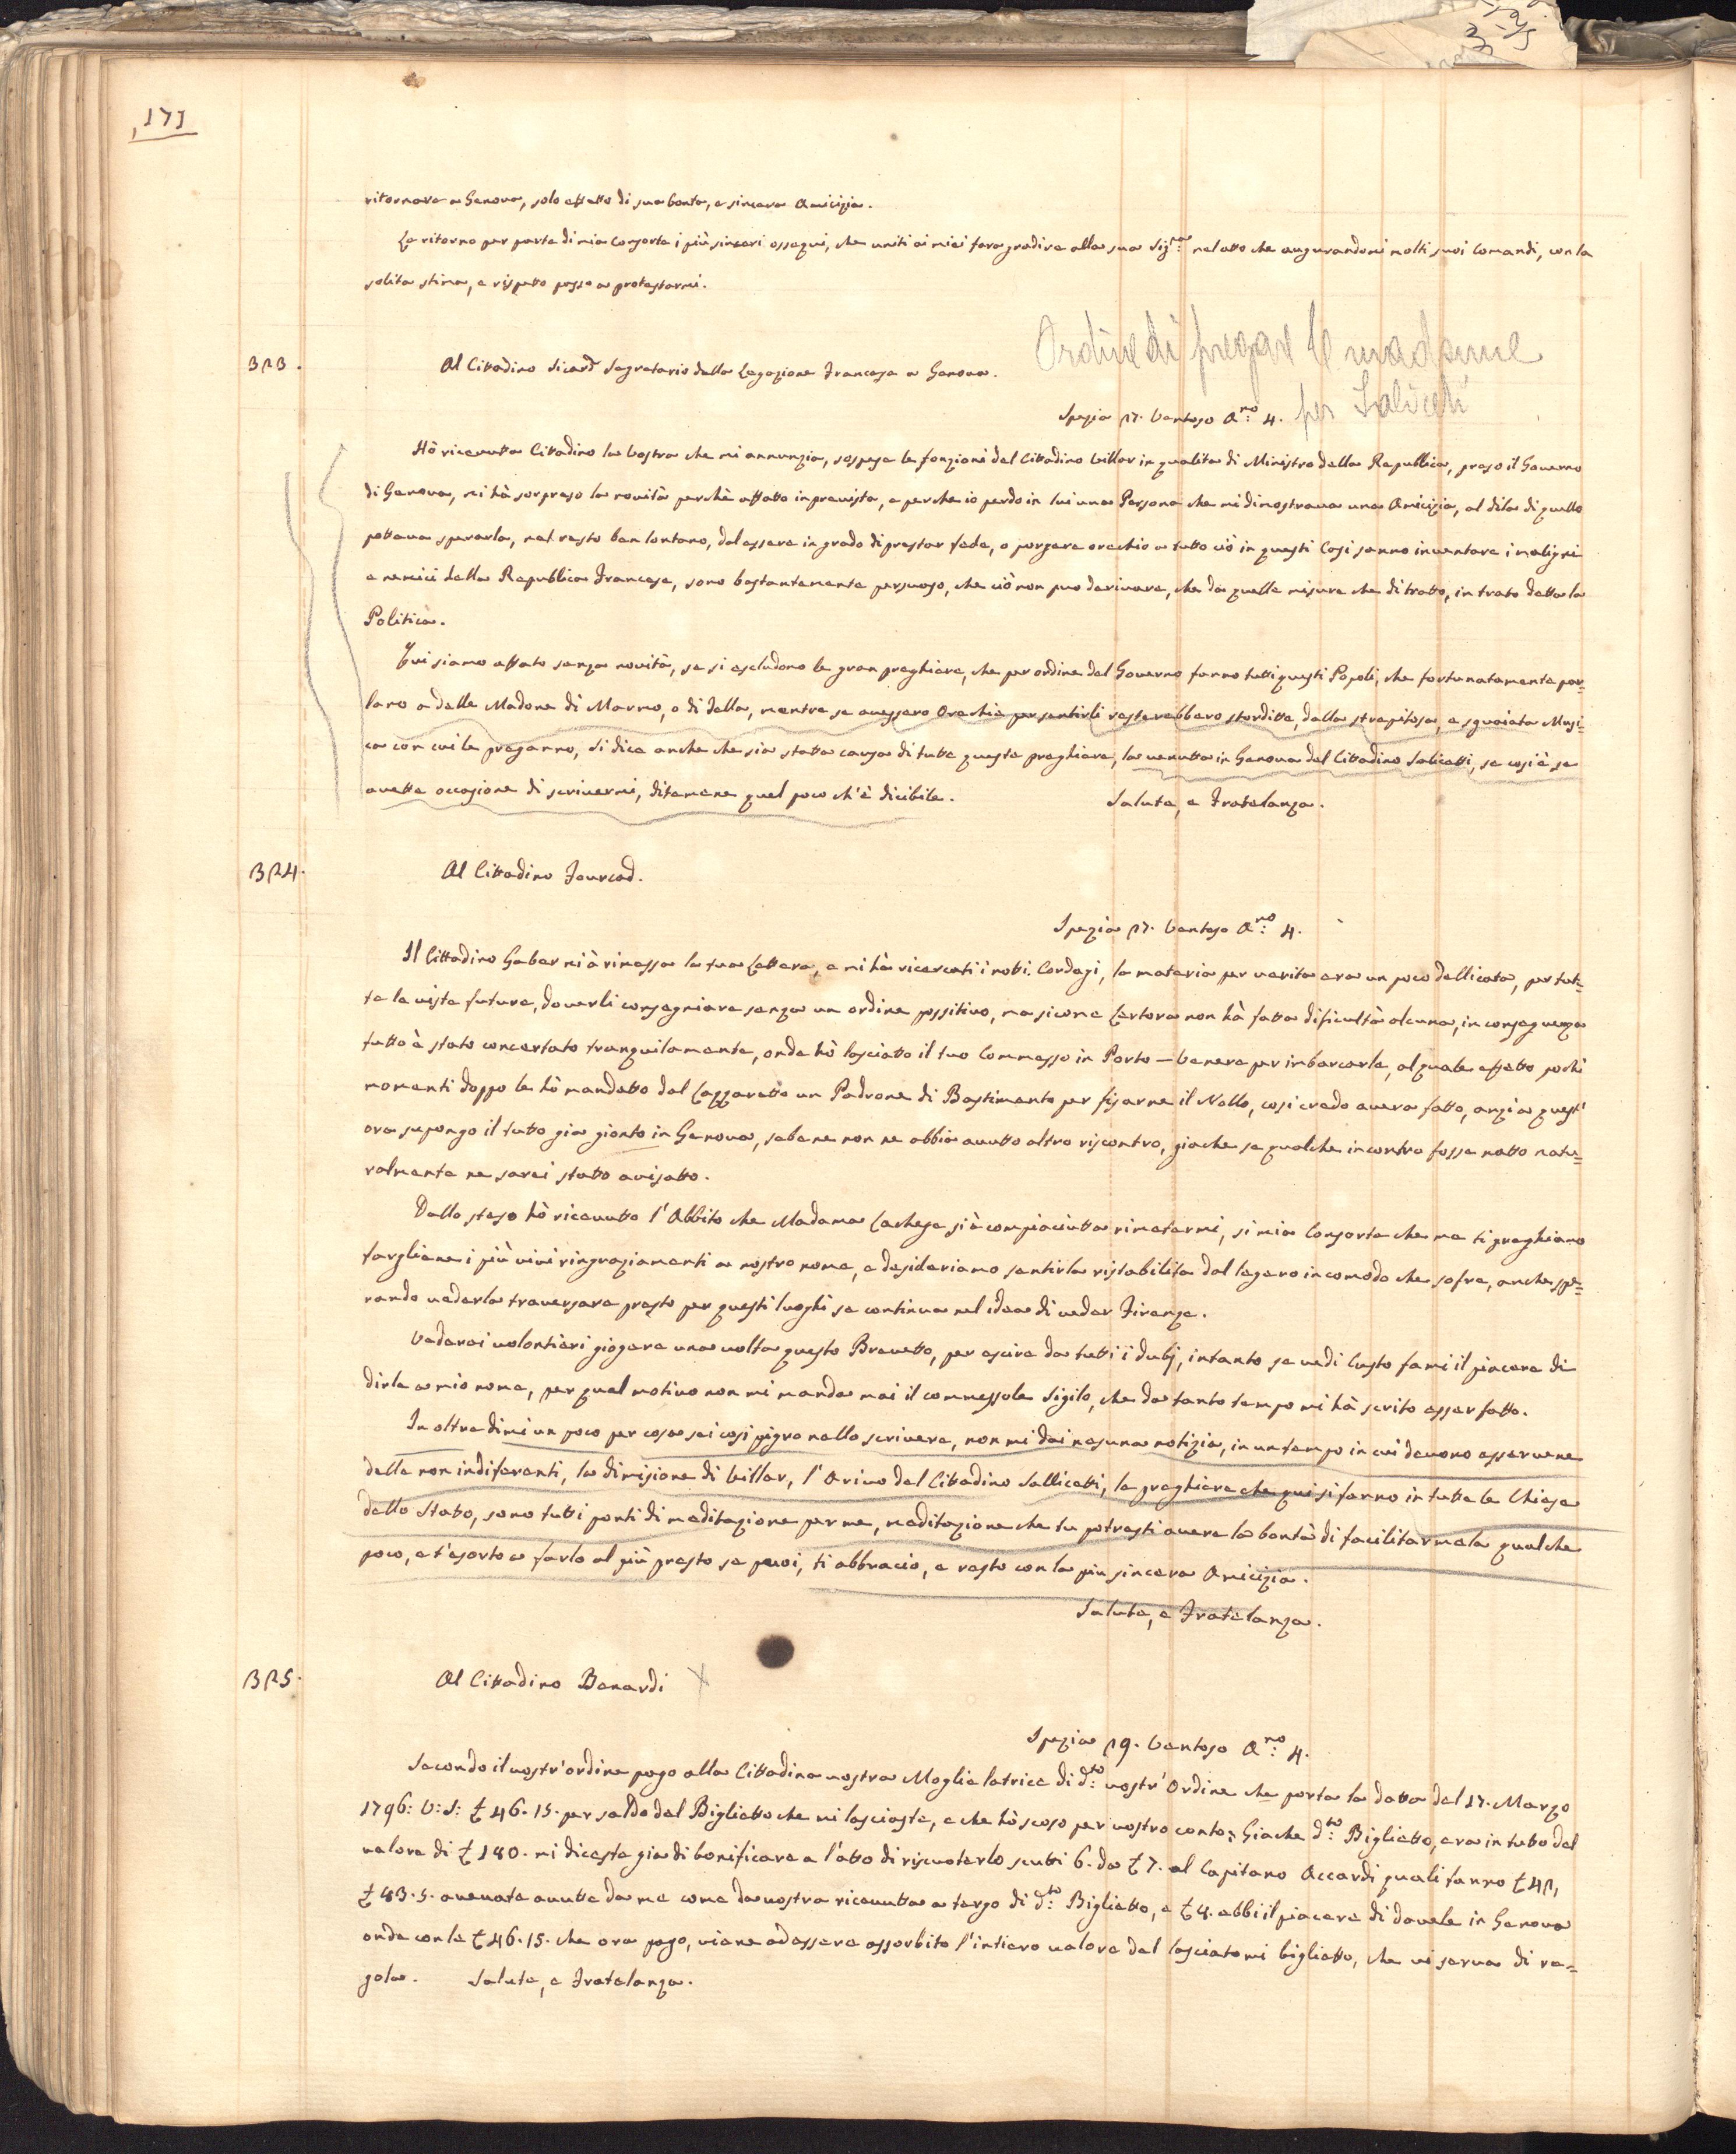 171
ritornare a Genova, solo effetto di sua bontà, e sincera Amicizia.
Le ritorno per parte di mia Consorte i più sinceri ossequi, che uniti ai miei fara gradire alla sua Sig:ra nel atto che augurandomi molti suoi Comandi, con la
solita stima, e rispetto passo a protestarmi.
Ordine di pregar le madonne
per Saliceti
323.
Al Cittadino Sicard Segretario della Legazione Francese a Genova.
Spezia 17. Ventoso A:no 4.
Hò ricevutta Cittadino la Vostra che mi annunzia, sospese le fonzioni del Cittadino Villar in qualita di Ministro della Republica, preso il Governo
di Genova, mi hà sorpreso la novità perchè affatto inprevista, e perche io perdo in lui una Persona che mi dimostrava una Amicizia, al dila di quello
potteva sperarla, nel resto ben lontano, dal essere in grado di prestar fede, o porgere orechio a tutto ciò in questi Casi sanno inventare i maligni
e nemici della Republica Francese, sono bastantemente persuaso, che ciò non puo derivare, che da quelle misure che di tratto, in trato detta la
Politica.
Qui siamo affato senza novità, se si escludono le gran preghiere, che per ordine del Governo fanno tutti questi Popoli, che fortunatamente par-
lano a delle Madone di Marmo, o di Tella, mentre se avessero Orechie per sentirli resterebbero storditte, dalla strepitosa, e sguaiata Musi-
ca con cui le preganno, Si dice anche che sia statta causa di tutte queste preghiere, la venutta in Genova del Cittadino Salicetti, se così è se
avette occasione di scrivermi, ditemene quel poco ch'è dicibile. Salute, e Fratelanza.
324.
Al Cittadino Fourcad.
Spezia 17. Ventoso A:no 4.
Il Cittadino Gaber mi à rimessa la tua Lettera, e mi hà ricercati i notti. Cordagi, la materia per verita era un poco dellicata, per tut-
te le viste future, doverli consegniare senza un ordine possitivo, ma sicome Certora non hà fatta dificultà alcuna, in conseguenza
tutto è stato concertato tranquilamente, onde hò lasciatto il tuo Commesso in Porto-Venere per imbarcarle, al quale effetto pochi
momenti doppo le hò mandatto dal Lazzaretto un Padrone di Bastimento per fisarne il Nollo, così credo avera fatto, anzi a quest'
ora supongo il tutto gia gionto in Genova, sebene non ne abbia avutto altro riscontro, giache se qualche incontro fosse natto natu-
ralmente ne sarei statto avisatto.
Dallo steso hò ricevutto l'Abbito che Madama Lachese si è compiaciutta rimetermi, si mia Consorte che me ti preghiamo
fargliene i più vivi ringraziamenti a nostro nome, e desideriamo sentirla ristabilita dal legero incomodo che sofre, anche spe-
rando vederla traversare presto per questi luoghi se continua nel idea di veder Firenze.
Vederei volontieri giogere una volta questo Brevetto, per escire da tutti i dubj, intanto se vedi Custo fami il piacere di
dirle a mio nome, per qual motivo non mi manda mai il commessole Sigilo, che da tanto tempo mi hà scrito esser fatto.
In oltre dimi un poco per cosa sei così pigro nello scrivere, non mi dai nesuna notizia, in un tempo in cui devono esservene
delle non indiferenti, la dimisione di Villar, l'Arivo del Cittadino Sallicetti, le preghiere che qui si fanno in tutte le Chiese
dello Statto, sono tutti ponti di meditazione per me, meditazione che tu potresti avere la bontà di facilitarmela qualche
poco, e t'esorto a farlo al più presto se puoi, ti abbracio, e resto con la piu sincera Amicizia.
Salute, e Fratelanza.
325.
Al Cittadino Benardi
Spezia 19. Ventoso A:no 4.
Secondo il vostr'ordine pago alla Cittadina vostra Moglie latrice di d:to vostr'Ordine che porta la datta del 17. Marzo
1796: V: S: £ 46. 15. per saldo del Biglietto che mi lasciaste, e che hò scoso per vostro conto; Giache d:to Biglietto, era in tutto del
valore di £ 180. mi diceste gia di bonificare a l'atto di riscuoterlo scutti 6. da £ 7. al Capitano Accardi quali fanno £ 42,
£ 83. 5. avevate avutte da me come da vostra ricevutta a tergo di d:to Biglietto, e £ 8. ebbi il piacere di davele in Genova
onde con le £ 46. 15. che ora pago, viene ad essere assorbito l'intiero valore del lasciatomi biglietto, che vi serva di re-
gola. Salute, e Fratelanza.